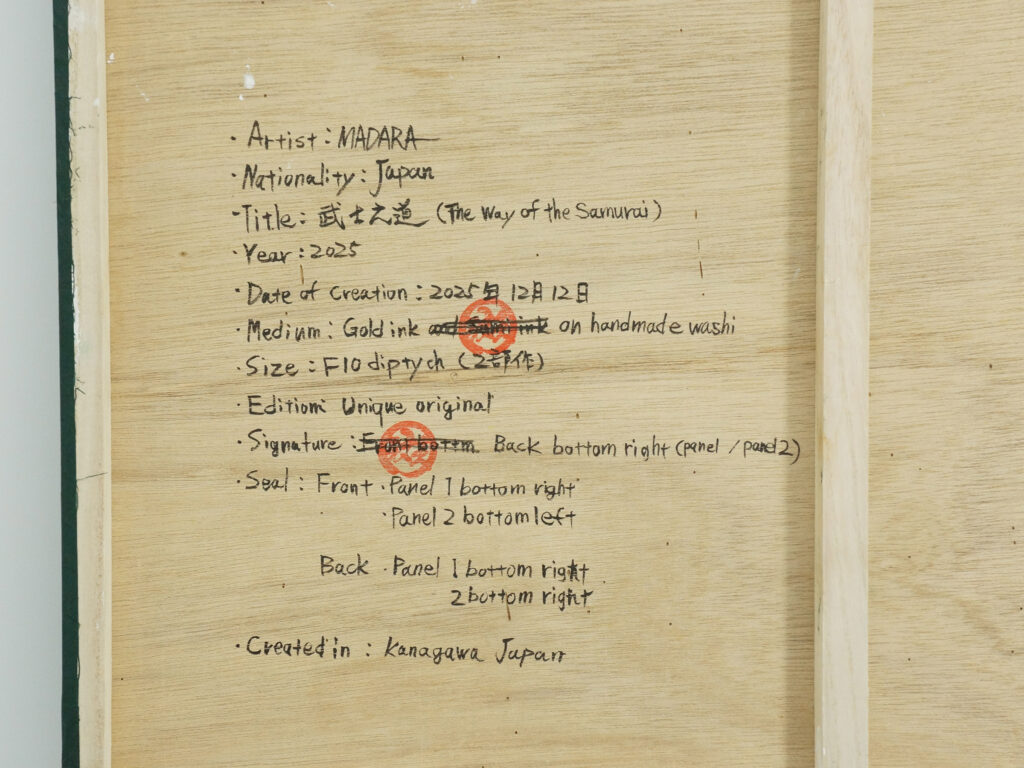 ・Artist : MADARA
・Nationality : Japan
・Title : 武士之道 (The Way of the Samurai)
・Year : 2025
・Date of creation : 2025年12月12日
・Medium : Gold ink and Sumi ink on handmade washi
・Size : F10 diptych (2部作)
・Edition: Unique original
・Signature : Front bottm Back bottom right (panel / panel 2)
・Seal : Front ・Panel 1 bottom right
・Panel 2 bottom left
Back ・Panel 1 bottom right
2 bottom right
・Created in : Kanagawa Japan